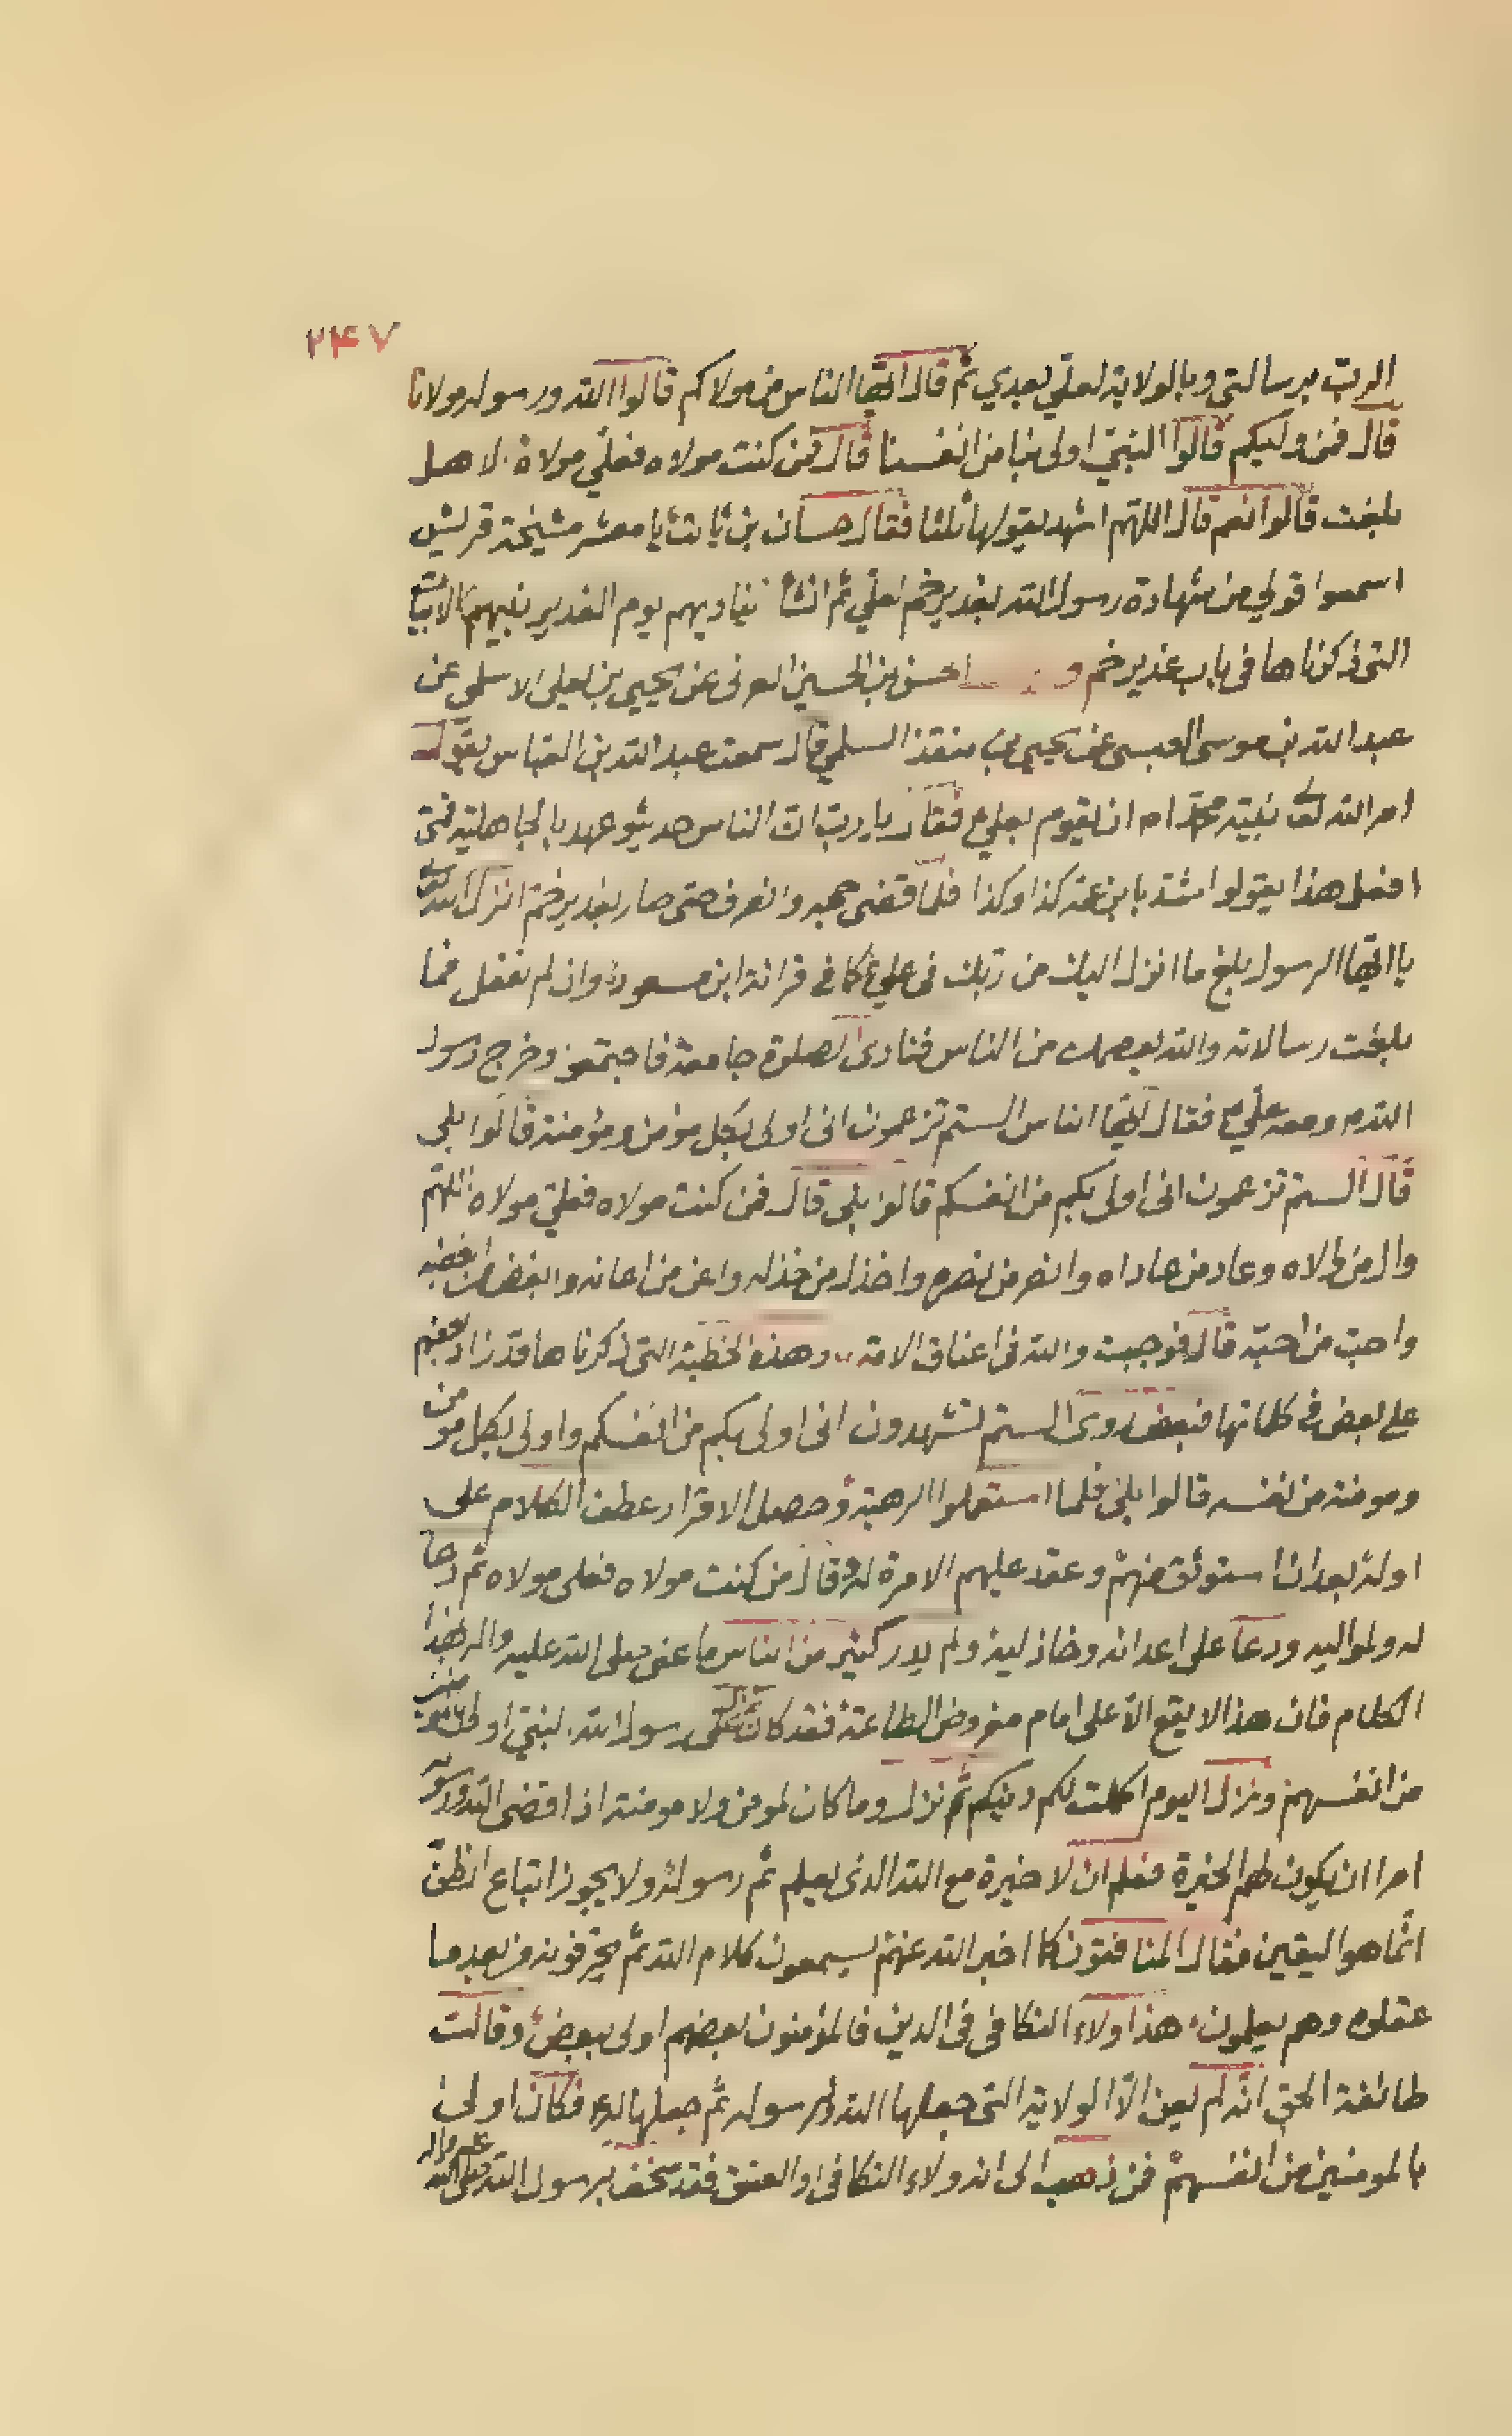 ۲۴۷
الرب برسالتي وبالولاية لعلي بعدي ثم قال ايها الناس من مولاكم قالوا الله ورسوله مولانا
قال فمن وليكم قالوا النبي اولى بنا من انفسنا قال فمن كنت مولاه فعلي مولاه الا هل
بلغت قالوا نعم قال اللهم اشهد يقولها ثلثا فقال حسان بن ثابت يا معشر مشيخة قريش
اسمعوا قولي من شهادة رسول الله بغدير خم لعلي ثم انشأ يناديهم يوم الغدير نبيهم الابيات
التي ذكرناها في باب غدير خم و حسن بن الحسين العرني عن يحيى بن يعلى الاسلمي عن
عبد الله بن موسى العبسي عن يحيى بن منقذ السلمي قال سمعت عبد الله بن العباس يقول
امر الله تعالى نبيه محمدا ص ان يقوم بعلي ع فقال يا رب ان الناس حديثو عهد بالجاهلية فمتى
افعل هذا يقولوا بابن عمه كذا وكذا فلما قضى حجه وانصرف حتى صار بغدير خم انزل الله تعالى
يا ايها الرسول بلغ ما انزل اليك من ربك في علي ع كما في قرائة ابن مسعود وان لم تفعل فما
بلغت رسالاته والله يعصمك من الناس فنادى الصلوة جامعة فاجتمعوا وخرج رسول
الله ص ومعه علي ع فقال ايها الناس الستم تزعمون اني اولى بكل مؤمن ومؤمنة قالوا بلى
قال الستم تزعمون اني اولى بكم من انفسكم قالوا بلى قال فمن كنت مولاه فعلي مولاه اللهم
وال من والاه وعاد من عاداه وانصر من نصره واخذل من خذله واعن من اعانه وابغض من ابغضه
واحب من احبه قال فوجبت والله في اعناق الامة وهذه الخطبة التي ذكرناها قد زاد بعضهم
على بعض في كلماتها فبعض روى الستم تشهدون اني اولى بكم من انفسكم واولى بكل مومن
ومومنة من نفسه قالوا بلى فلما استعملوا الرهبة وحصل الاقرار عطف الكلام على
اوله بعد ان استوثق منهم وعقد عليهم الامرة له وقال من كنت مولاه فعلي مولاه ثم دعا
له ولمواليه ودعا على اعدائه وخاذليه ولم يدر كثير من الناس ما عنى صلى الله عليه واله بهذا
الكلام فان هذا لا يقع الا على امام مفروض الطاعة فقد كان رسول الله النبي اولى بالمؤمنين
من انفسهم ونزل اليوم اكملت لكم دينكم ثم نزل وما كان لمومن ولا مومنة اذا قضى الله ورسوله
امرا ان يكون لهم الخيرة فعلم ان لا خيرة مع الله الذي يعلم ثم رسوله ولا يجوز اتباع الظن
انما هو اليقين فقال المنافقون كما اخبر الله عنهم يسمعون كلام الله ثم يحرفونه من بعد ما
عقلوه وهم يعلمون هذا ولاء التكافي في الدين فالمؤمنون بعضهم اولى ببعض وقالت
طائفة الحق انه لم يعن الا الولاية التي جعلها الله لرسوله ثم جعلها له فكان اولى
بالمومنين من انفسهم فمن ذهب الى انه ولاء التكافي او العتق فقد سخف برسول الله صلى الله عليه واله